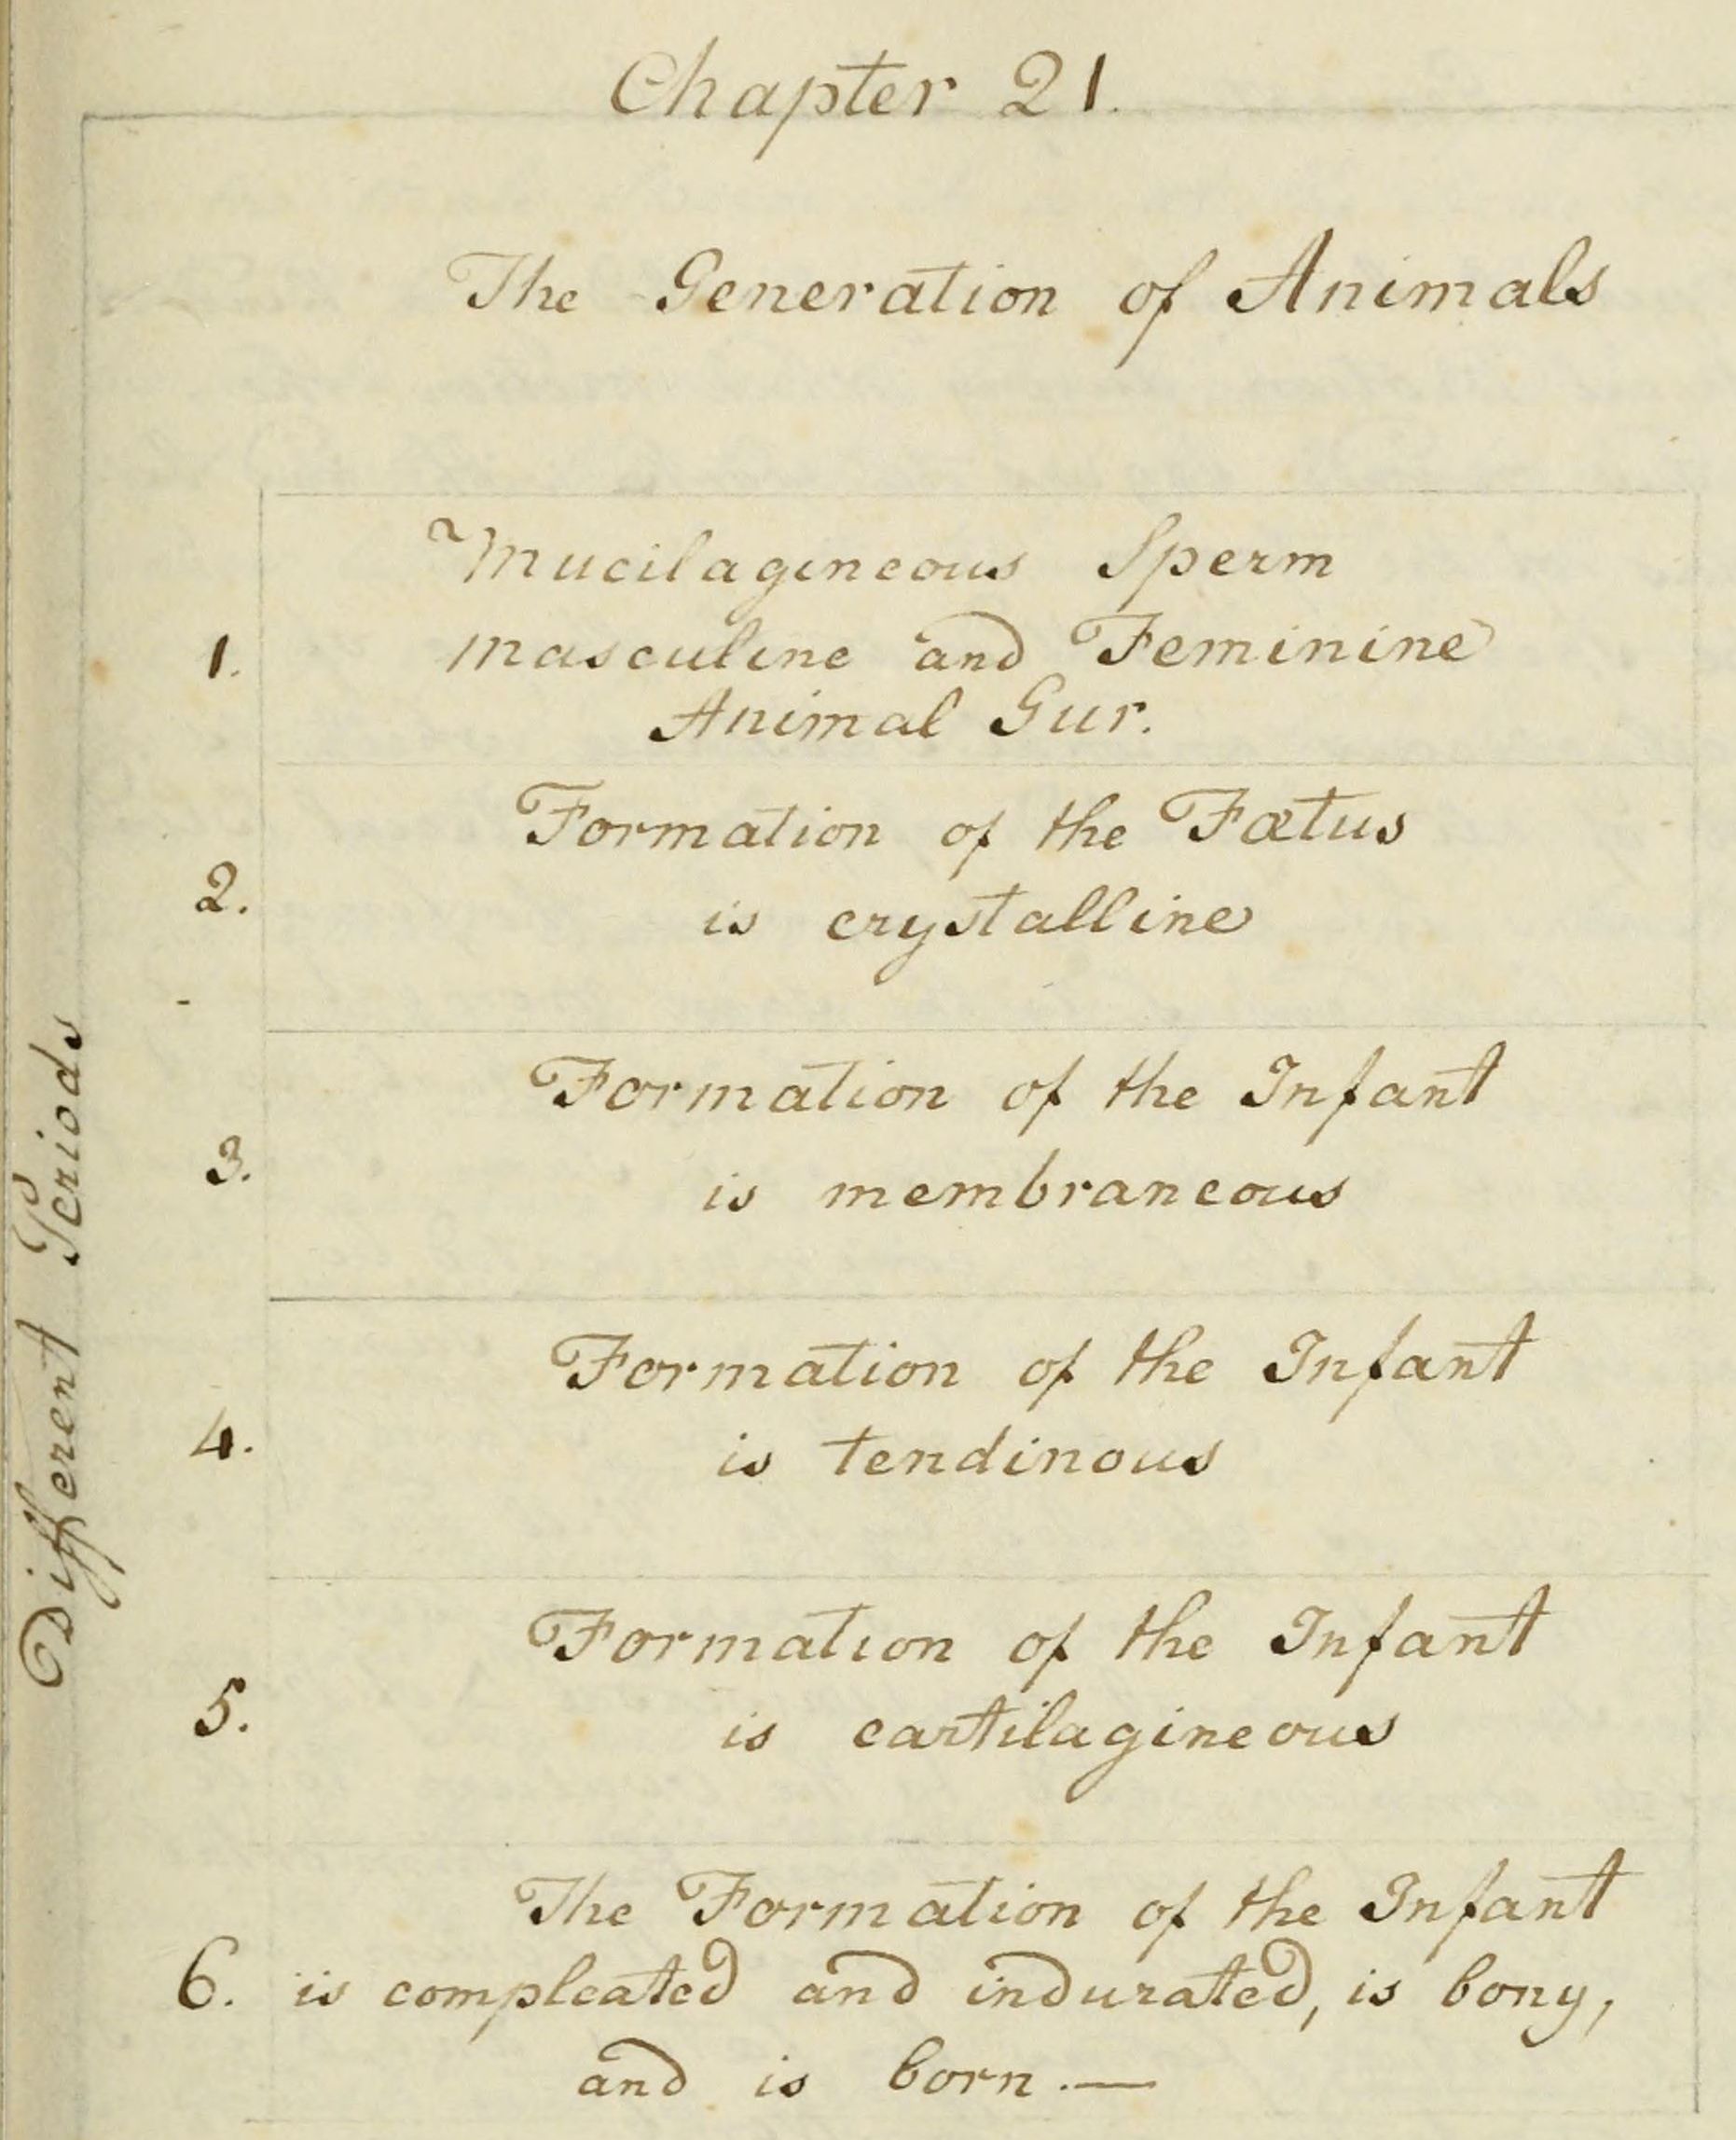 Chapter 21.
The Generation of Animals
Different Periods
Mucilagineous Sperm
1. masculine and Feminine
Animal Gur.
Formation of the Fœtus
2. is crystalline
Formation of the Infant
3. is membraneous
Formation of the Infant
4. is tendinous
Formation of the Infant
5. is cartilagineous
The Formation of the Infant
6. is compleated and indurated, is bony,
and is born.—